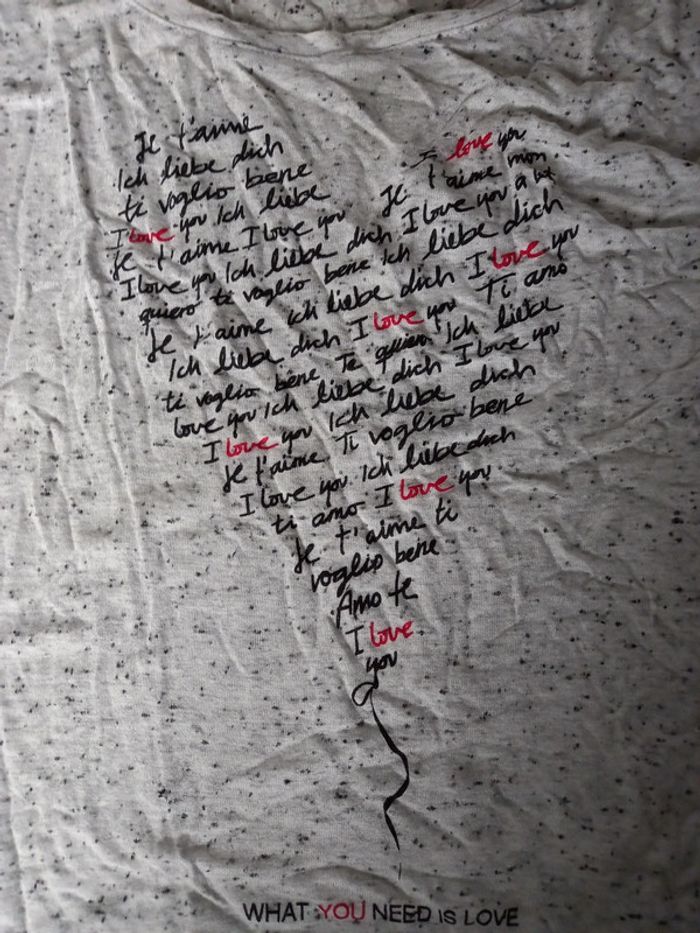 Je t'aime
Ich liebe dich
ti voglio bene
I love you Ich liebe
I love you
Je t'aime I love you Je t'aime mon
I love you Ich liebe dich I love you a
quiero ti voglio bene Ich liebe dich
Je t'aime ich liebe dich I love you
Ich liebe dich I love you Ti amo
ti voglio bene Te quiero Ich liebe
love you Ich liebe dich I love you
I love you Ich liebe dich
Je t'aime Ti voglio bene
I love you Ich liebe dich
ti amo I love you
Je t'aime ti
voglio bene
Amo te
I love
you
WHAT YOU NEED IS LOVE